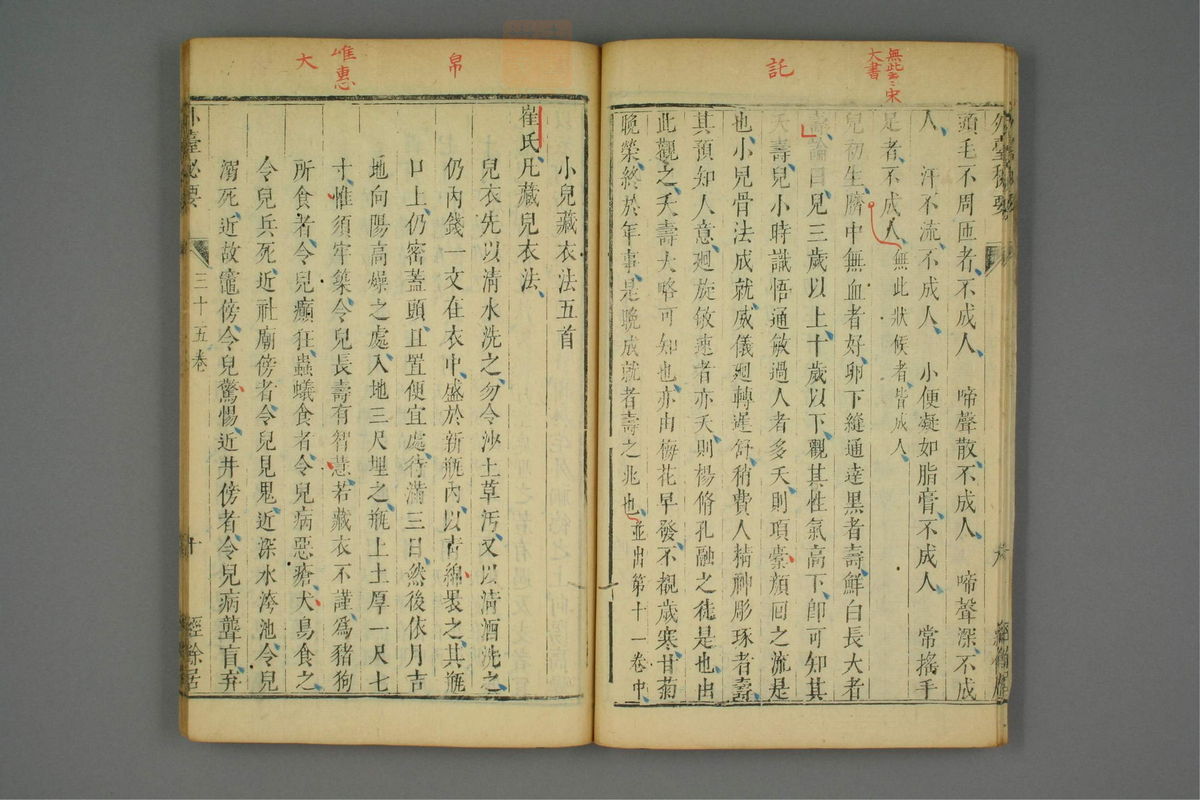 無此至宋
大書
託
外臺秘要
頭毛不周匝者不成人 啼聲散不成人 啼聲深不成
人 汗不流不成人 小便凝如脂膏不成人 常搖手
是者不成人無此狀候者皆成人
兒初生臍中無血者好卵下縫通達黑者壽鮮白長大者
壽論曰兒三歲以上十歲以下觀其性氣高下即可知其
夭壽兒小時識悟通敏過人者多夭則項槖顏回之流是
也小兒骨法成就威儀廻轉遲舒稍費人精神彫琢者壽
其預知人意廻旋敏速者亦夭則楊脩孔融之徒是也由
此觀之夭壽大略可知也亦由梅花早發不覩歲寒甘菊
晚榮終於年事是晚成就者壽之兆也並出第十一卷中
帛
唯惠
大
小兒藏衣法五首
崔氏凡藏兒衣法
兒衣先以清水洗之勿令沙土草汚又以清酒洗之
仍內錢一文在衣中盛於新瓶內以青綿裹之其瓶
口上仍密蓋頭且置便宜處待滿三日然後依月吉
地向陽高燥之處入地三尺埋之瓶上土厚一尺七
寸惟須牢築令兒長壽有智慧若藏衣不謹爲豬狗
所食者令兒癲狂蟲蟻食者令兒病惡瘡犬鳥食之
令兒兵死近社廟傍者令兒見鬼近深水洿池令兒
溺死近故竈傍令兒驚惕近井傍者令兒病聾盲弃
外臺秘要
三十五卷
十
經餘居